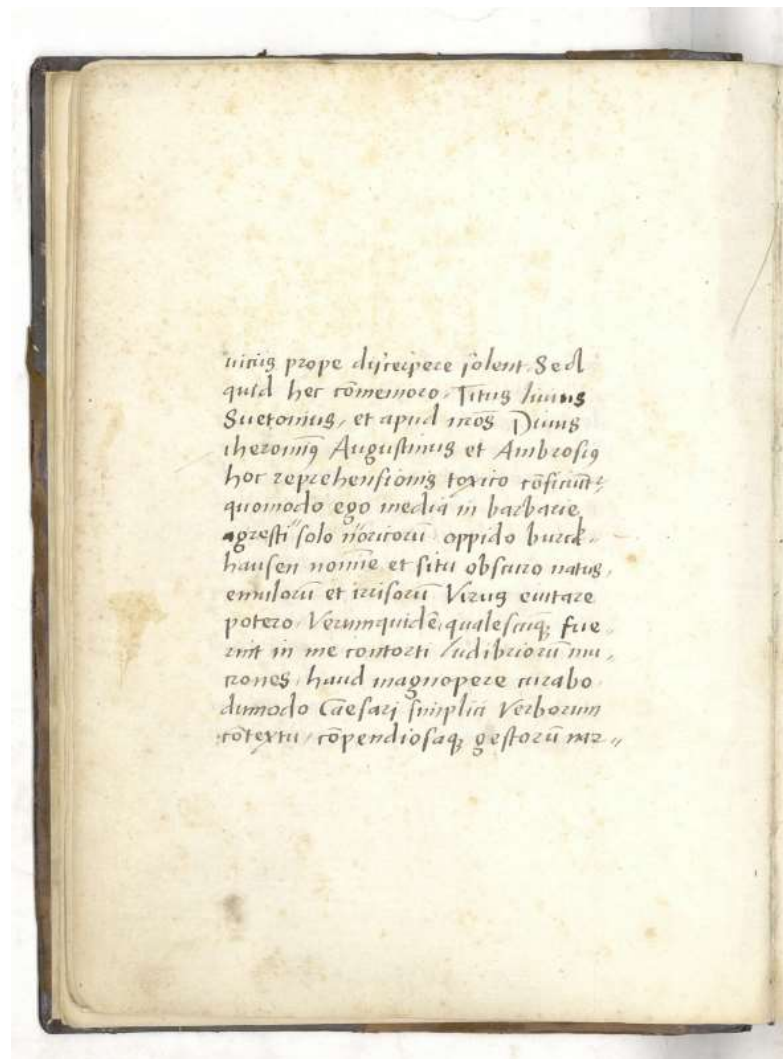 uiciꝰ prope discerpere solent. Sed
quid hec cōmemoro. Titus liuius
Suetonius, et apud nr̄os Diuus
iheronimꝰ Augustinus et Ambrosiꝰ
hoc reprehensionis toxico cōficiunt᷑,
quomodo ego media in barbarie,
agresti solo noricorū oppido burck-
hausen nomīe et situ obscuro natus,
emulorū et irrisorū Virus euitare
potero. Verumquidē, qualescūqꝫ fue〃
rint in me contorti ludibriorū mu〃
crones, haud magnopere curabo
dūmodo Caesari simplici Verborum
cōtextu, cōpendiosaqꝫ gestorū nar〃